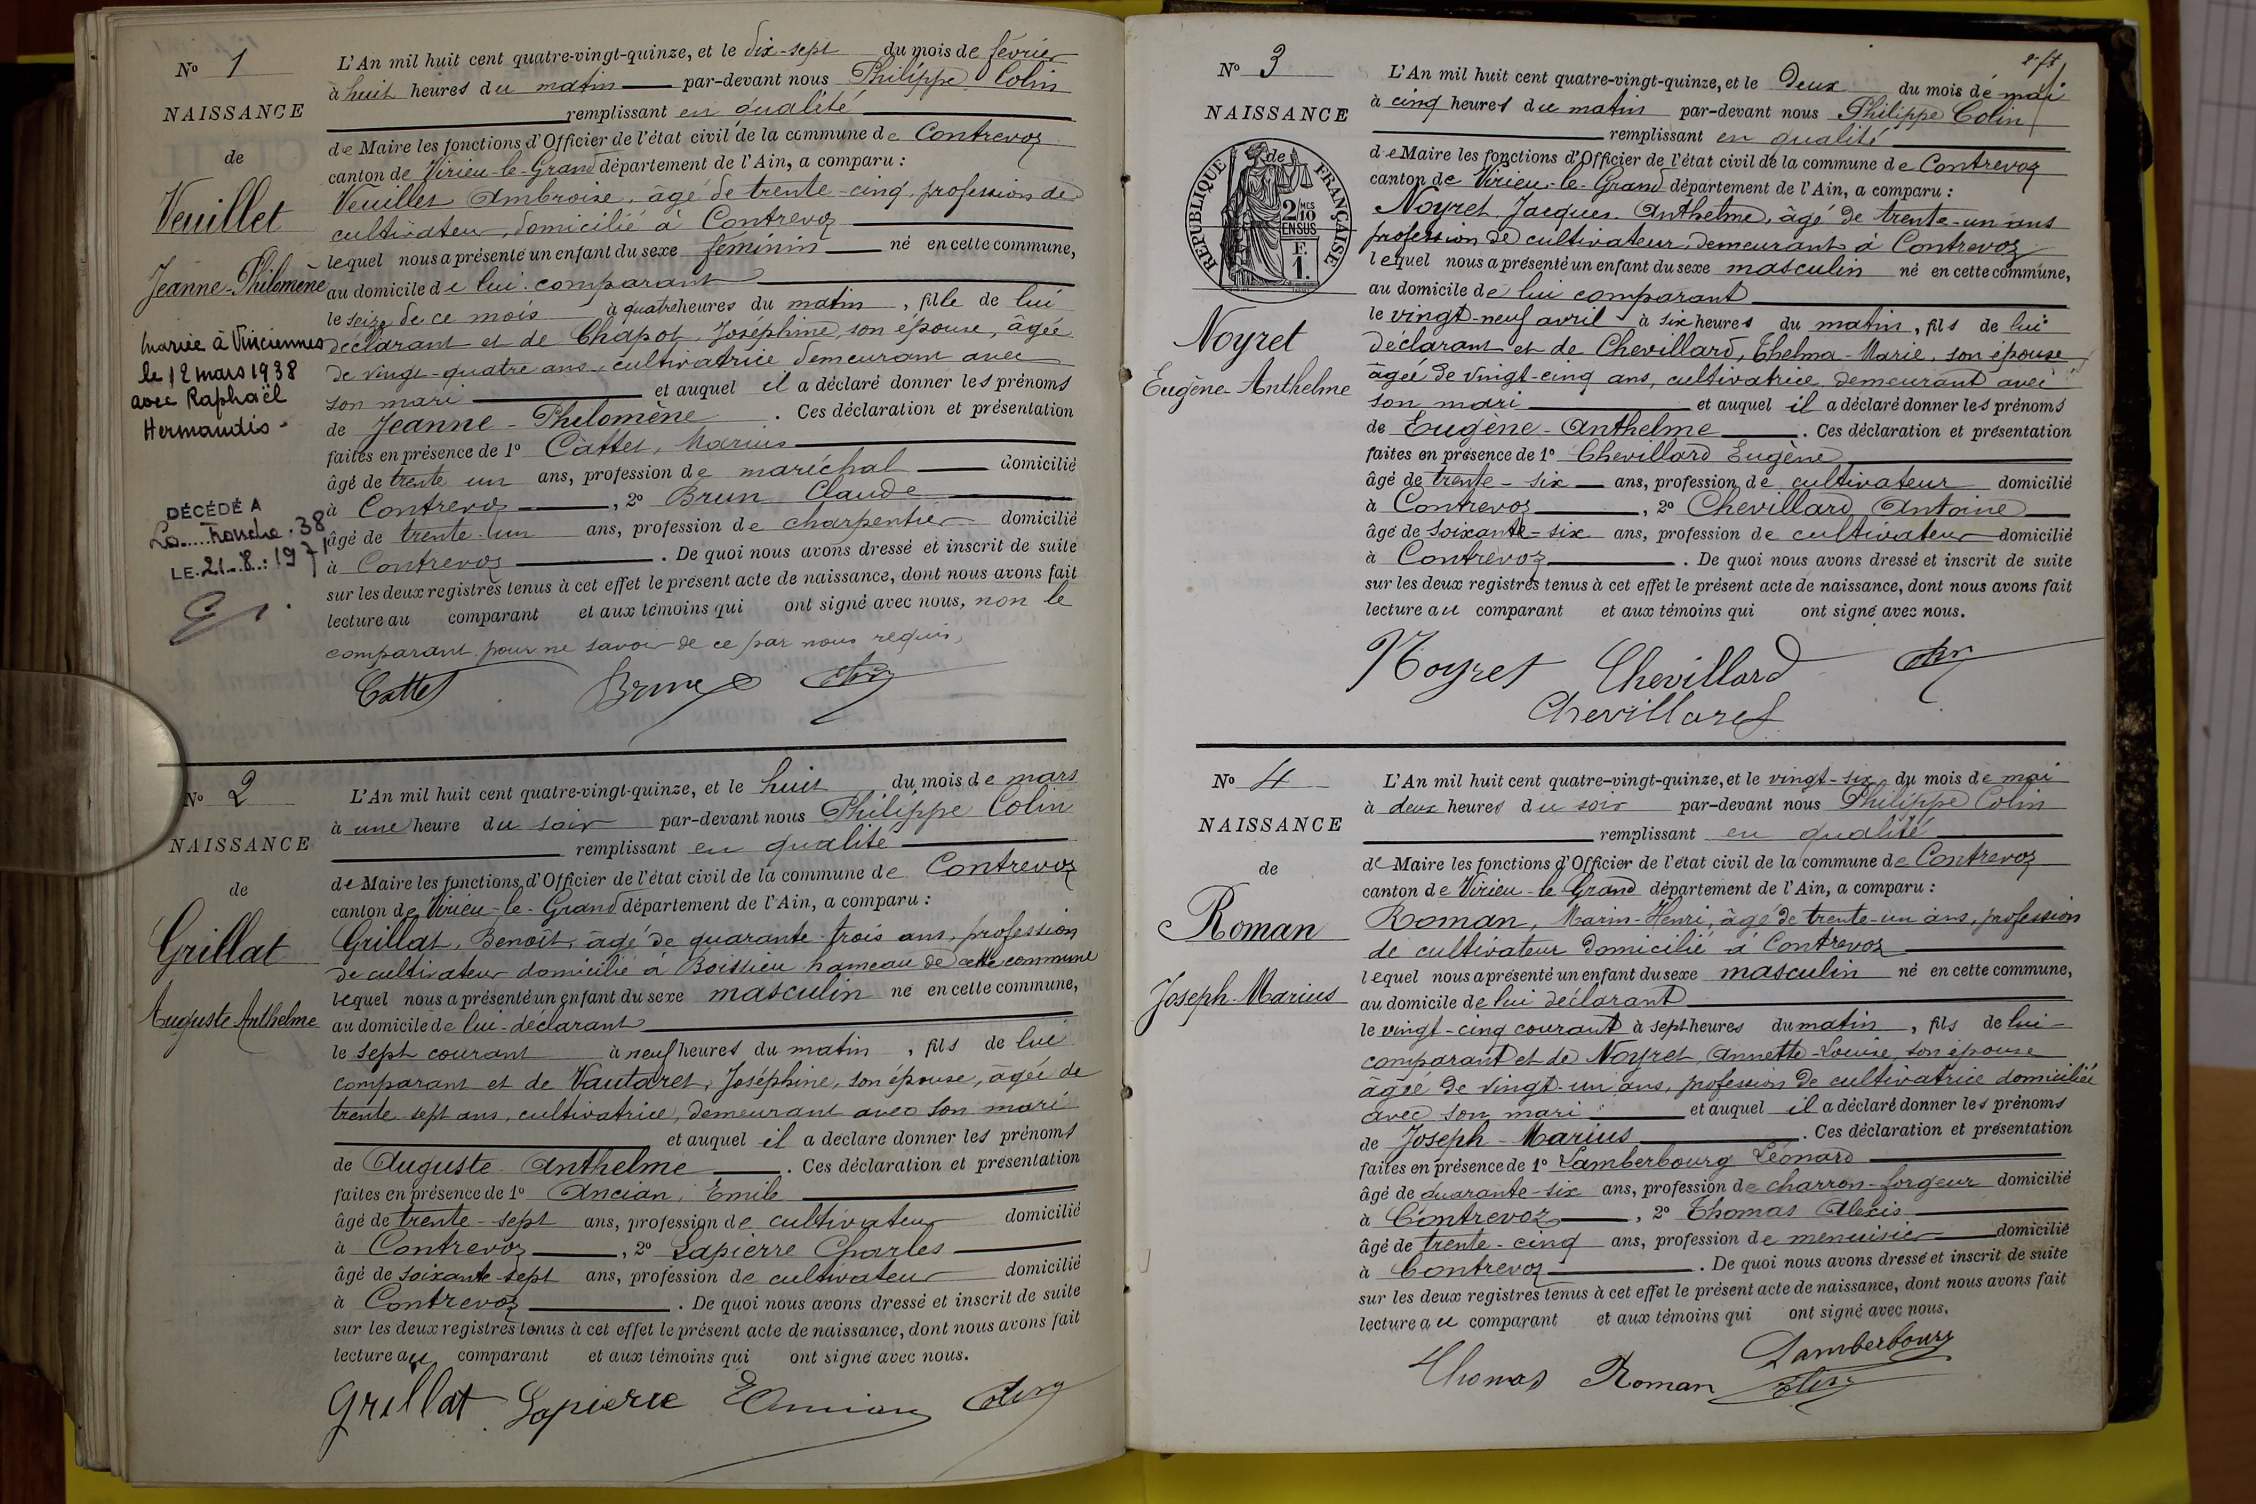 N° 1
NAISSANCE
de
Veuillet
Jeanne-Philomène
mariée à Vinciennes
le 12 mars 1938
avec Raphaël
Hermandis-
DÉCÉDÉ A
La Tronche. 38
LE 21.8.1971
L'An mil huit cent quatre-vingt-quinze, et le dix-sept du mois de février
à huit heures du matin par-devant nous Philippe Colin
remplissant en qualité
de Maire les fonctions d'Officier de l'état civil de la commune de Contrevoz
canton de Virieu-le-Grand département de l'Ain, a comparu :
Veuillet Ambroise, âgé de trente-cinq, profession de
cultivateur, domicilié à Contrevoz
lequel nous a présenté un enfant du sexe féminin né en cette commune,
au domicile de lui comparant
le seize de ce mois à quatre heures du matin, fille de lui
déclarant et de Chapot, Joséphine, son épouse, âgée
de vingt-quatre ans, cultivatrice demeurant avec
son mari et auquel il a déclaré donner les prénoms
de Jeanne-Philomène. Ces déclaration et présentation
faites en présence de 1° Cattet, Marius
âgé de trente un ans, profession de maréchal domicilié
à Contrevoz, 2° Brun Claude
âgé de trente-un ans, profession de charpentier domicilié
à Contrevoz. De quoi nous avons dressé et inscrit de suite
sur les deux registres tenus à cet effet le présent acte de naissance, dont nous avons fait
lecture au comparant et aux témoins qui ont signé avec nous, non le
comparant pour ne savoir de ce par nous requis,
Cattet Brun Colin
N° 2
NAISSANCE
de
Grillat
Auguste Anthelme
L'An mil huit cent quatre-vingt-quinze, et le huit du mois de mars
à une heure du soir par-devant nous Philippe Colin
remplissant en qualité
de Maire les fonctions d'Officier de l'état civil de la commune de Contrevoz
canton de Virieu-le-Grand département de l'Ain, a comparu :
Grillat, Benoît, âgé de quarante-trois ans, profession
de cultivateur domicilié à Boissieu hameau de cette commune
lequel nous a présenté un enfant du sexe masculin né en cette commune,
au domicile de lui-déclarant
le sept courant à neuf heures du matin, fils de lui
comparant et de Vautaret, Joséphine, son épouse, âgée de
trente-sept ans, cultivatrice, demeurant avec son mari
et auquel il a déclaré donner les prénoms
de Auguste Anthelme. Ces déclaration et présentation
faites en présence de 1° Ancian, Emile
âgé de trente-sept ans, profession de cultivateur domicilié
à Contrevoz, 2° Lapierre Charles
âgé de soixante-sept ans, profession de cultivateur domicilié
à Contrevoz. De quoi nous avons dressé et inscrit de suite
sur les deux registres tenus à cet effet le présent acte de naissance, dont nous avons fait
lecture au comparant et aux témoins qui ont signé avec nous.
Grillat Lapierre E Ancian Colin
N° 3
NAISSANCE
de
RÉPUBLIQUE FRANÇAISE
2/10 MES
EN SUS
F.
1.
Noyret
Eugène-Anthelme
L'An mil huit cent quatre-vingt-quinze, et le Deux du mois de mai
à cinq heures du matin par-devant nous Philippe Colin
remplissant en qualité
de Maire les fonctions d'Officier de l'état civil de la commune de Contrevoz
canton de Virieu-le-Grand département de l'Ain, a comparu :
Noyret, Jacques-Anthelme, âgé de trente-un ans
profession de cultivateur, demeurant à Contrevoz
lequel nous a présenté un enfant du sexe masculin né en cette commune,
au domicile de lui comparant
le vingt-neuf avril à six heures du matin, fils de lui
déclarant et de Chevillard, Thelma-Marie, son épouse
âgée de vingt-cinq ans, cultivatrice demeurant avec
son mari et auquel il a déclaré donner les prénoms
de Eugène-Anthelme. Ces déclaration et présentation
faites en présence de 1° Chevillard Eugène
âgé de trente-six ans, profession de cultivateur domicilié
à Contrevoz, 2° Chevillard Antoine
âgé de soixante-six ans, profession de cultivateur domicilié
à Contrevoz. De quoi nous avons dressé et inscrit de suite
sur les deux registres tenus à cet effet le présent acte de naissance, dont nous avons fait
lecture au comparant et aux témoins qui ont signé avec nous.
Noyret Chevillard Colin
Chevillard
N° 4
NAISSANCE
de
Roman
Joseph-Marius
L'An mil huit cent quatre-vingt-quinze, et le vingt-six du mois de mai
à deux heures du soir par-devant nous Philippe Colin
remplissant en qualité
de Maire les fonctions d'Officier de l'état civil de la commune de Contrevoz
canton de Virieu-le Grand département de l'Ain, a comparu :
Roman, Marin-Henri, âgé de trente-un ans, profession
de cultivateur domicilié à Contrevoz
lequel nous a présenté un enfant du sexe masculin né en cette commune,
au domicile de lui déclarant
le vingt-cinq courant à sept heures du matin, fils de lui-
comparant et de Noyret Annette-Louise, son épouse
âgée de vingt-un ans, profession de cultivatrice domiciliée
avec son mari et auquel il a déclaré donner les prénoms
de Joseph-Marius. Ces déclaration et présentation
faites en présence de 1° Lamberbourg Léonard
âgé de quarante-six ans, profession de charron-forgeur domicilié
à Contrevoz, 2° Thomas Alexis
âgé de trente-cinq ans, profession de menuisier domicilié
à Contrevoz. De quoi nous avons dressé et inscrit de suite
sur les deux registres tenus à cet effet le présent acte de naissance, dont nous avons fait
lecture au comparant et aux témoins qui ont signé avec nous.
Lamberbourg
Thomas Roman Colin